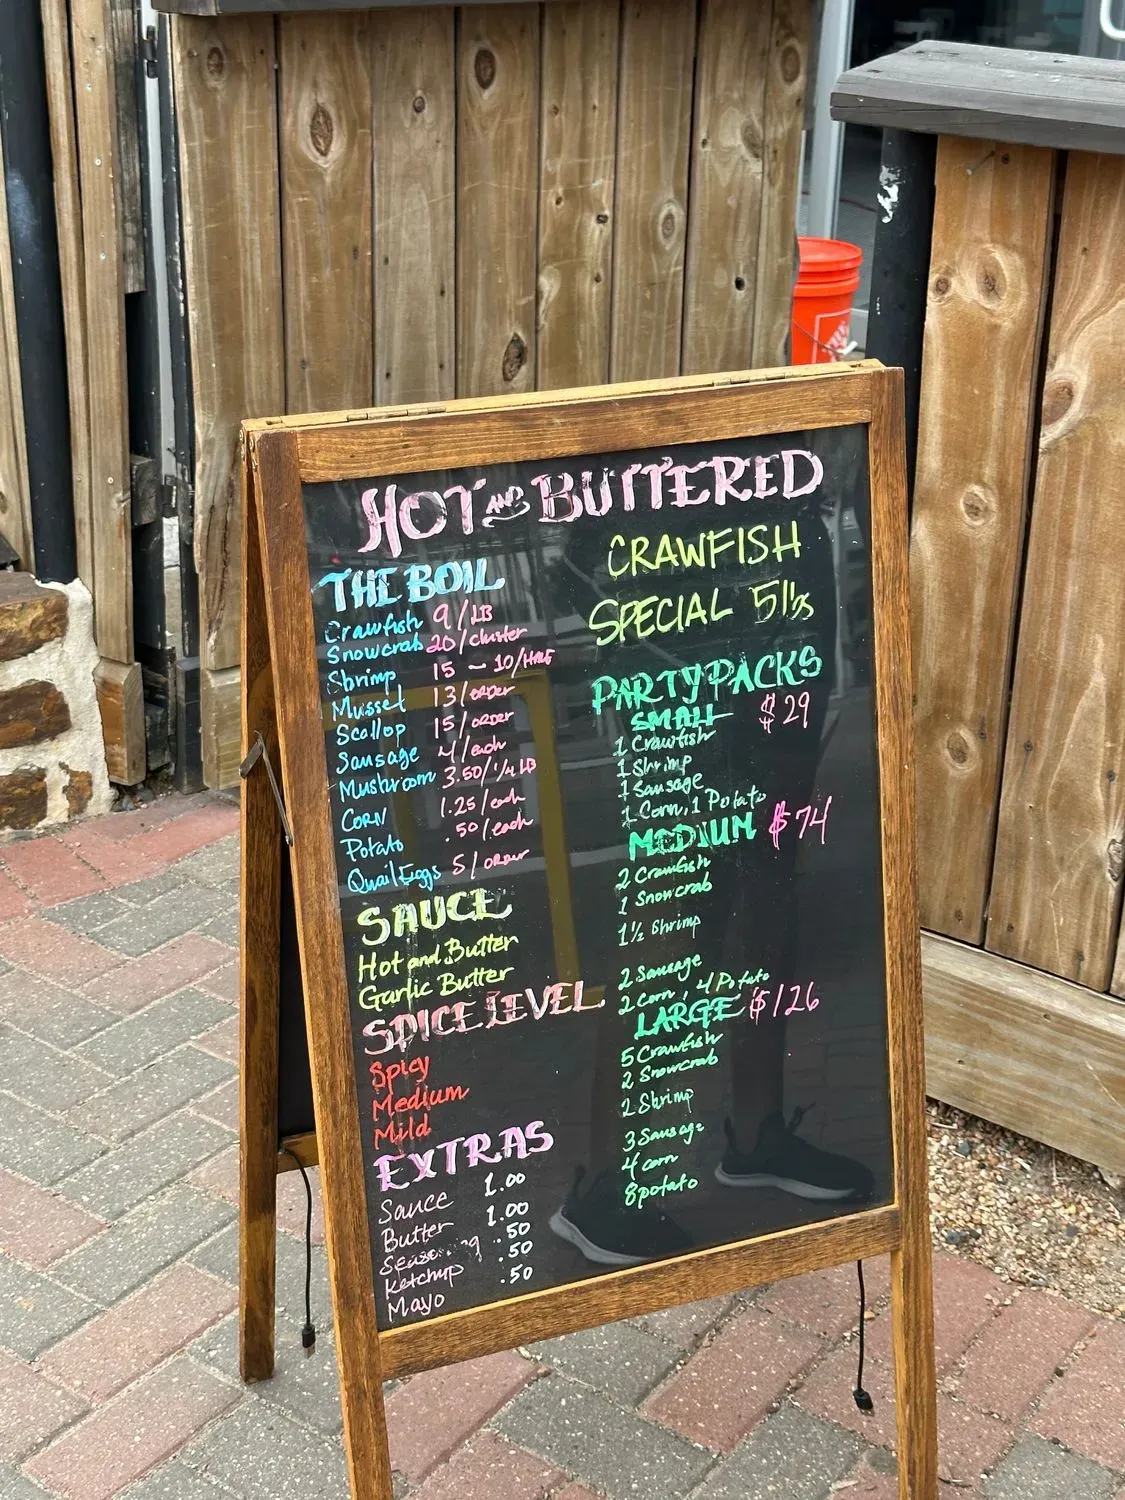 HOT AND BUTTERED
THE BOIL
Crawfish 9/LB
Snowcrab 20/cluster
Shrimp 15 - 10/HALF
Mussel 13/order
Scallop 15/order
Sausage 4/each
Mushroom 3.50/1/4 LB
CORN 1.25/each
Potato .50/each
Quail Eggs 5/order
SAUCE
Hot and Butter
Garlic Butter
SPICE LEVEL
Spicy
Medium
Mild
EXTRAS
Sauce 1.00
Butter 1.00
Seasoning .50
Ketchup .50
Mayo .50
CRAWFISH
SPECIAL 5lbs
PARTY PACKS
SMALL $29
1 Crawfish
1 Shrimp
1 Sausage
1 Corn, 1 Potato
MEDIUM $74
2 Crawfish
1 Snowcrab
1 1/2 Shrimp
2 Sausage
2 corn, 4 Potato
LARGE $126
5 Crawfish
2 Snowcrab
2 Shrimp
3 Sausage
4 corn
8 potato